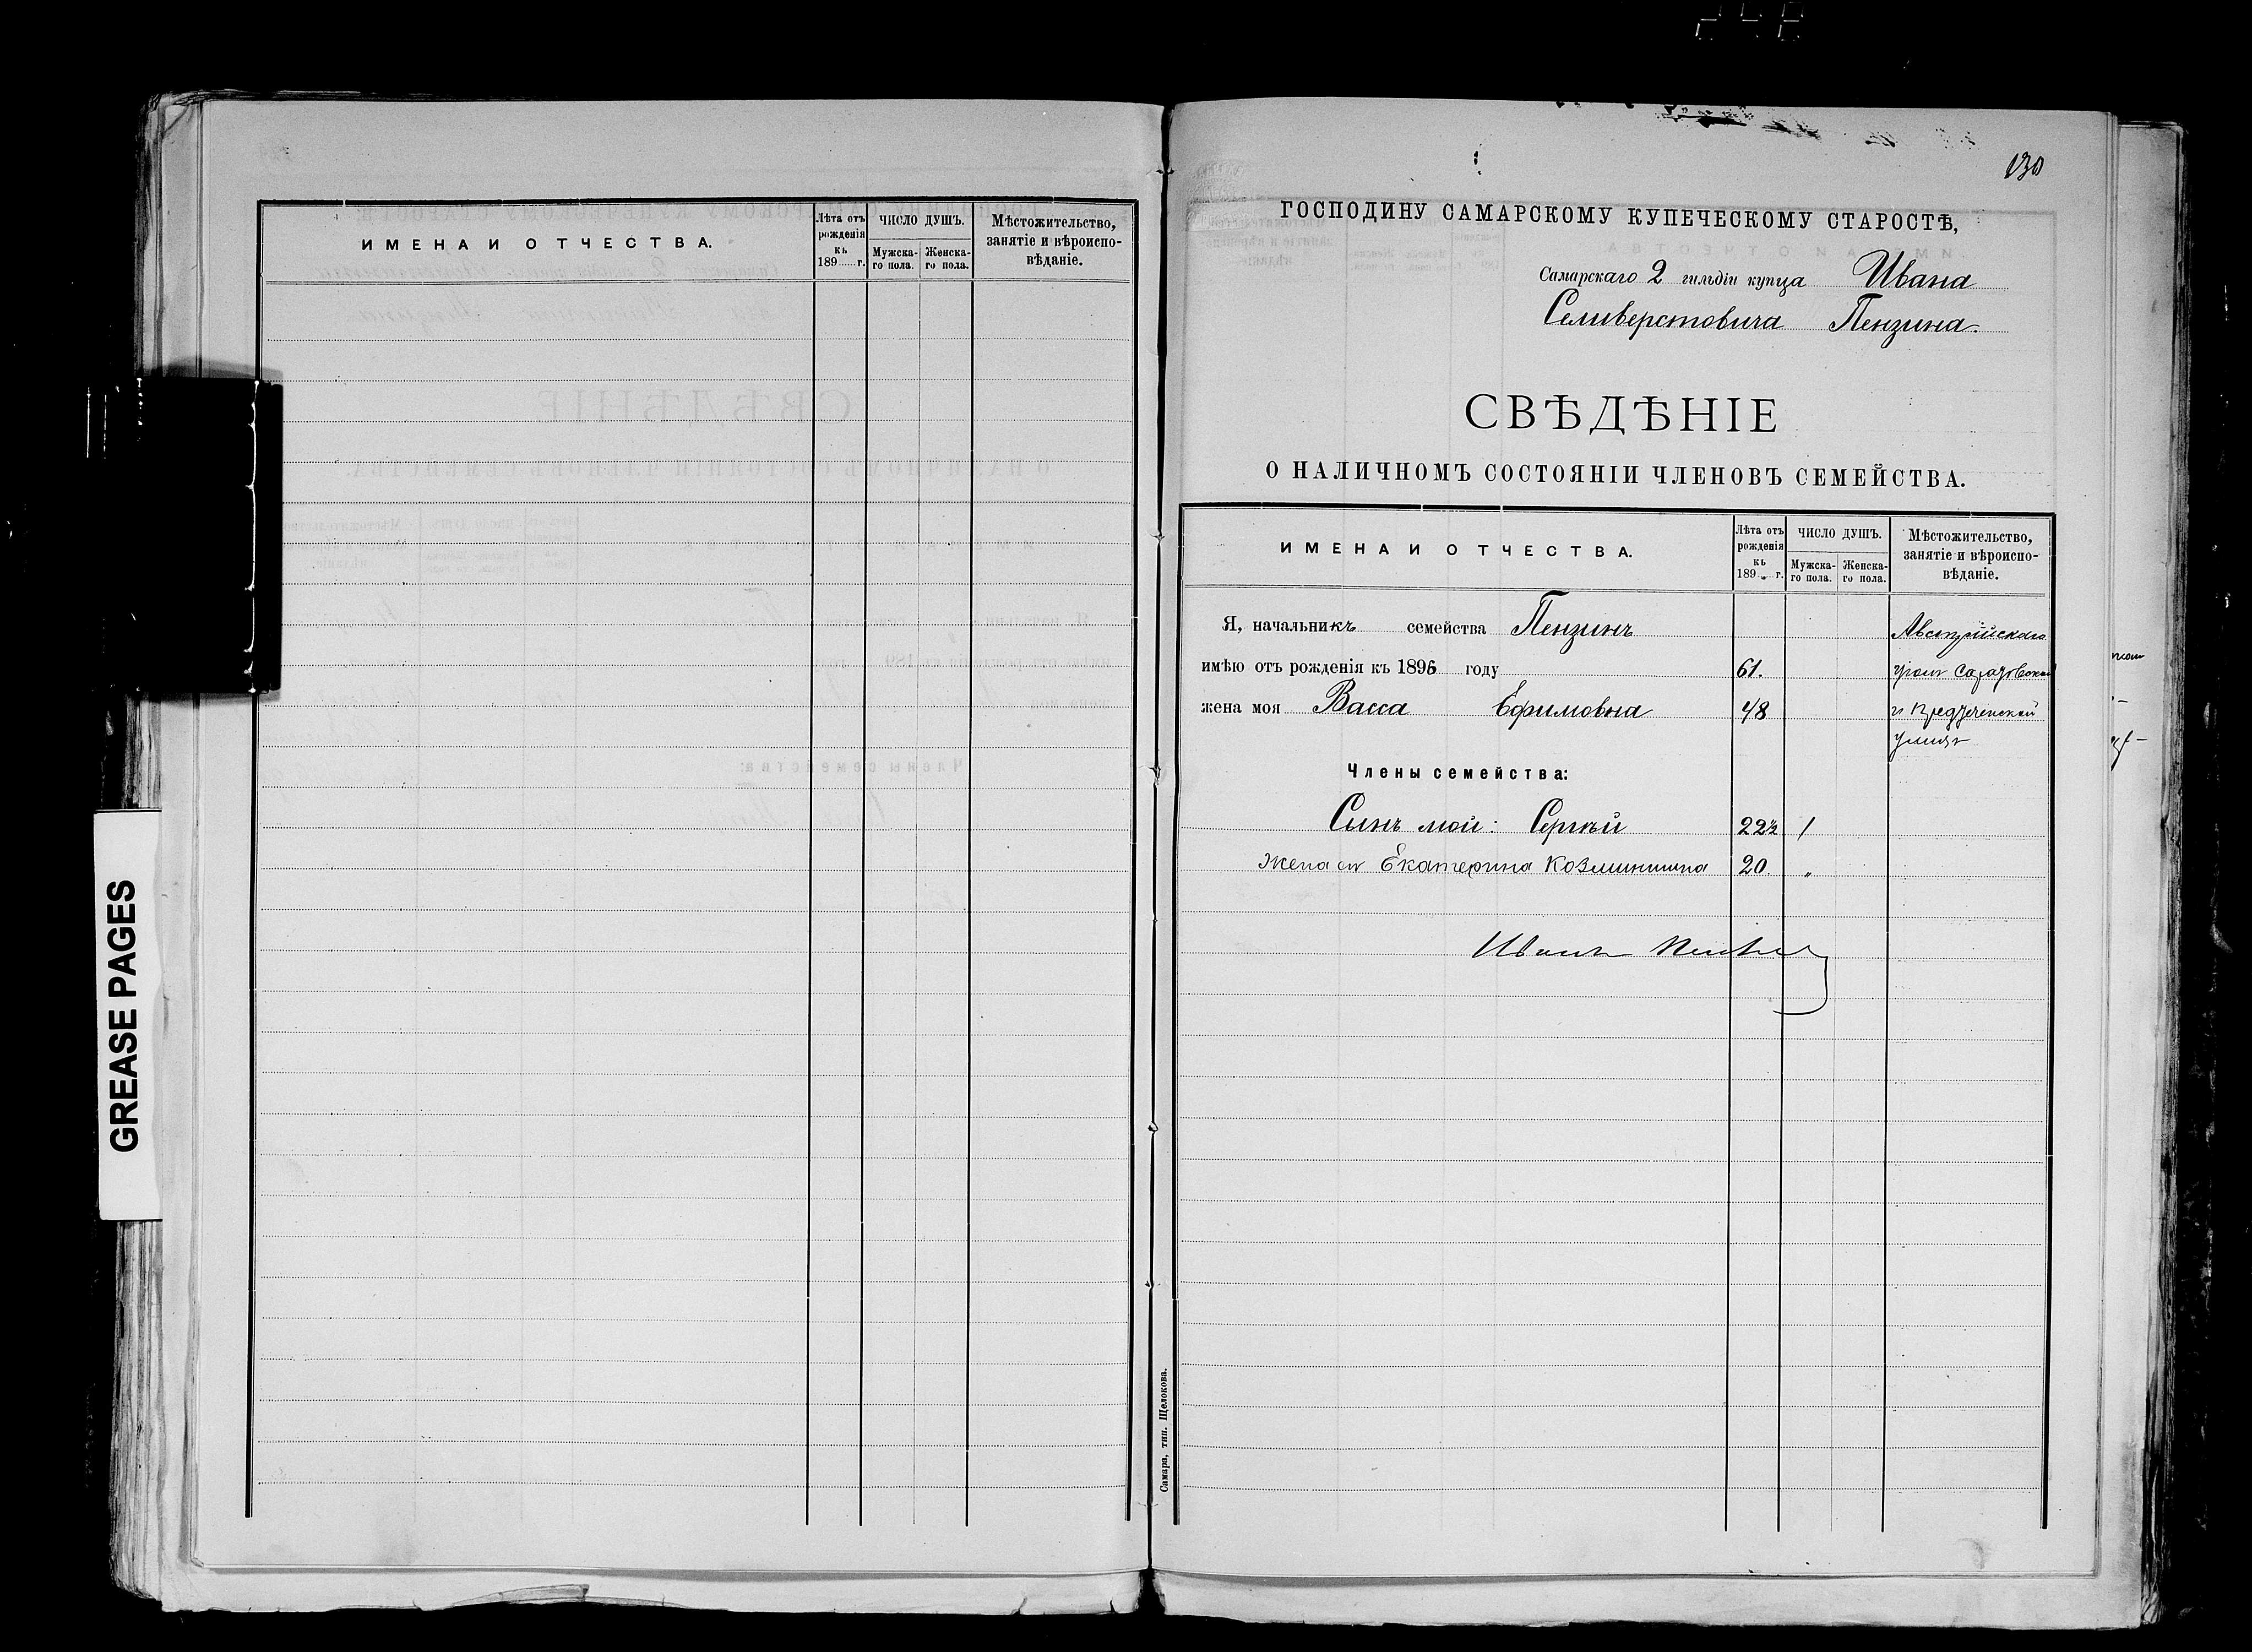 ИМЕНА И ОТЧЕСТВА.
Лѣта отъ рожденія къ 189 г.
ЧИСЛО ДУШЪ.
Мужска-го пола.
Женска-го пола.
Мѣстожительство, занятіе и вѣроиспо-вѣданіе.
GREASE PAGES
130
ГОСПОДИНУ САМАРСКОМУ КУПЕЧЕСКОМУ СТАРОСТѢ,
Самарскаго 2 гильдіи купца Ивана
Селиверстовича Пензина.
СВѢДѢНІЕ
О НАЛИЧНОМЪ СОСТОЯНІИ ЧЛЕНОВЪ СЕМЕЙСТВА.
ИМЕНА И ОТЧЕСТВА.
Лѣта отъ рожденія къ 189 г.
ЧИСЛО ДУШЪ.
Мужска-го пола.
Женска-го пола.
Мѣстожительство, занятіе и вѣроиспо-вѣданіе.
Я, начальникъ семейства Пензинъ Австрійскаго
имѣю отъ рожденія къ 1896 году 61.
жена моя Васса Ефимовна 48
Члены семейства:
Сынъ мой: Сергѣй 22½ 1
жена ег Екатерина 20. "
Иванъ
Самара, тип. Щелокова.